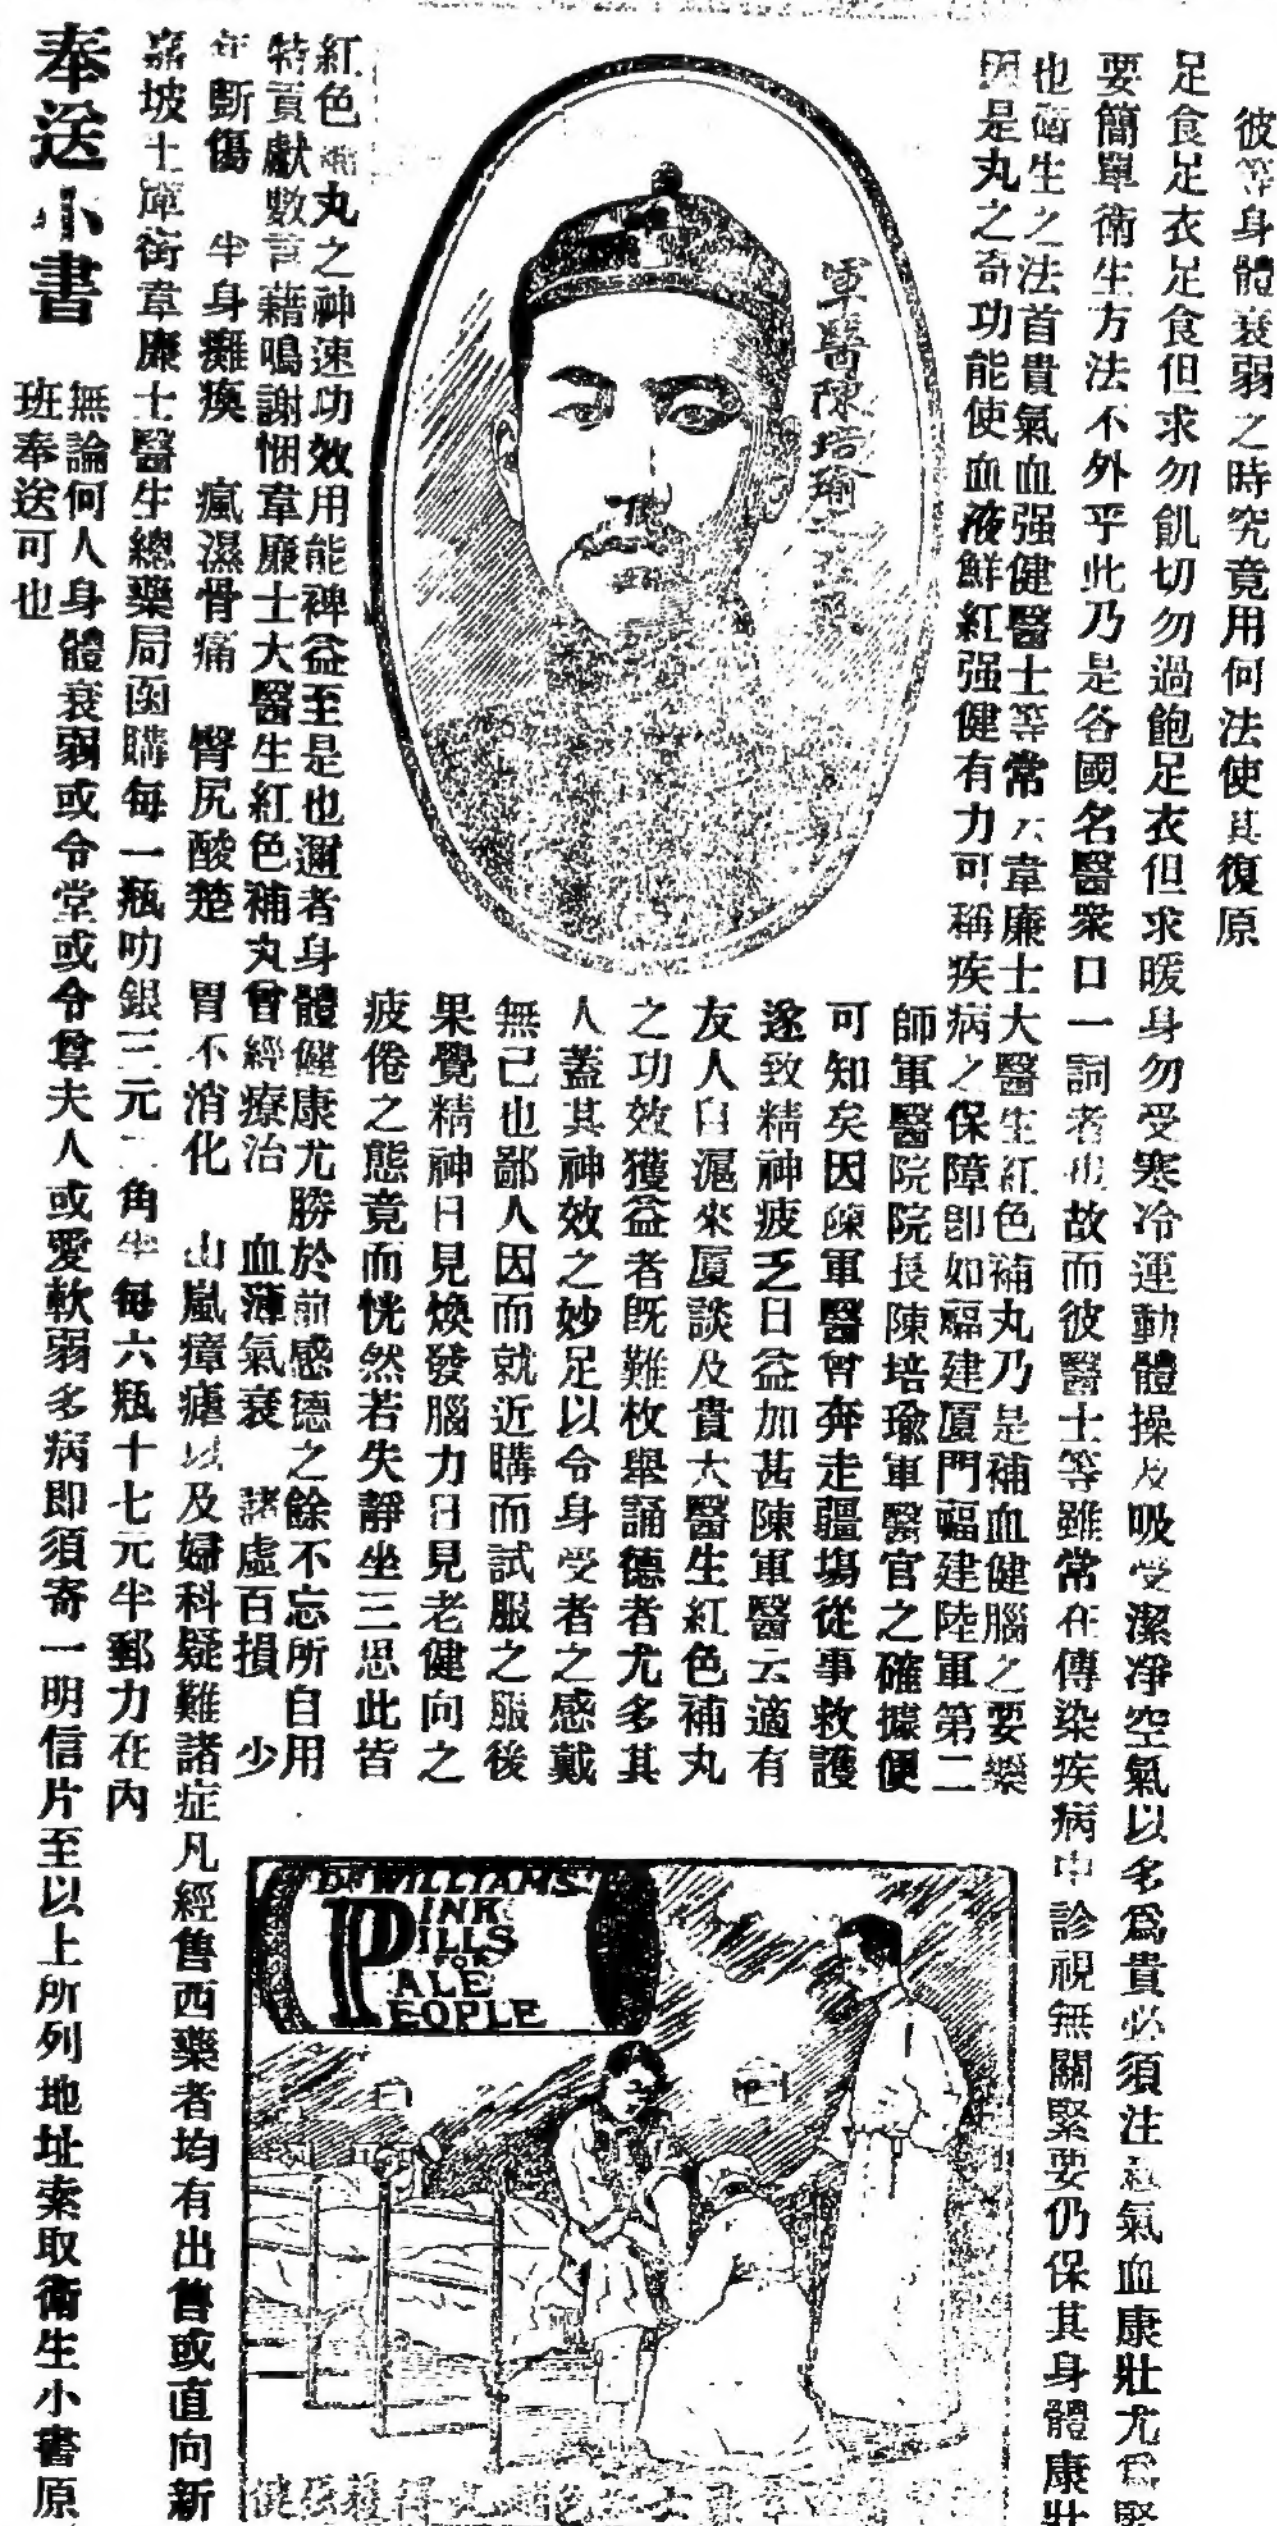 彼等身體衰弱之時究竟用何法使其復原
足食足衣足食但求勿飢切勿過飽足衣但求暖身勿受寒冷運動體操及吸受潔凈空氣以多爲貴必須注意氣血康壯尤爲緊
要簡單衛生方法不外乎此乃是各國名醫衆口一詞者也故而彼醫士等雖常在傳染疾病中診視無關緊要仍保其身體康壯
也衛生之法首貴氣血强健醫士等常云韋廉士大醫生紅色補丸乃是補血健腦之要藥
因是丸之奇功能使血液鮮紅强健有力可稱疾病之保障卽如福建厦門福建陸軍第二
師軍醫院院長陳培瑜軍醫官之確據便
可知矣因陳軍醫曾奔走疆塲從事救護
遂致精神疲乏日益加甚陳軍醫云適有
友人自滬來厦談及貴大醫生紅色補丸
之功效獲益者旣難枚舉誦德者尤多其
人蓋其神效之妙足以令身受者之感戴
無已也鄙人因而就近購而試服之服後
果覺精神日見煥發腦力日見老健向之
疲倦之態竟而恍然若失靜坐三思此皆
紅色補丸之神速功效用能裨益至是也邇者身體健康尤勝於前感德之餘不忘所自用
特貢獻數言藉鳴謝悃韋廉士大醫生紅色補丸曾經療治 血薄氣衰 諸虛百損 少
年斷傷 半身癱瘓 瘋濕骨痛 臀尻酸楚 胃不消化 山嵐瘴瘧以及婦科疑難諸症凡經售西藥者均有出售或直向新
嘉坡土庫街韋廉士醫生總藥局函購每一瓶叻銀三元二角半每六瓶十七元半郵力在內
奉送小書
無論何人身體衰弱或令堂或令尊夫人或愛軟弱多病即須寄一明信片至以上所列地址索取衛生小書原
班奉送可也
軍醫陳培瑜
DR WILLIAMS'
PINK
PILLS
FOR
PALE
PEOPLE